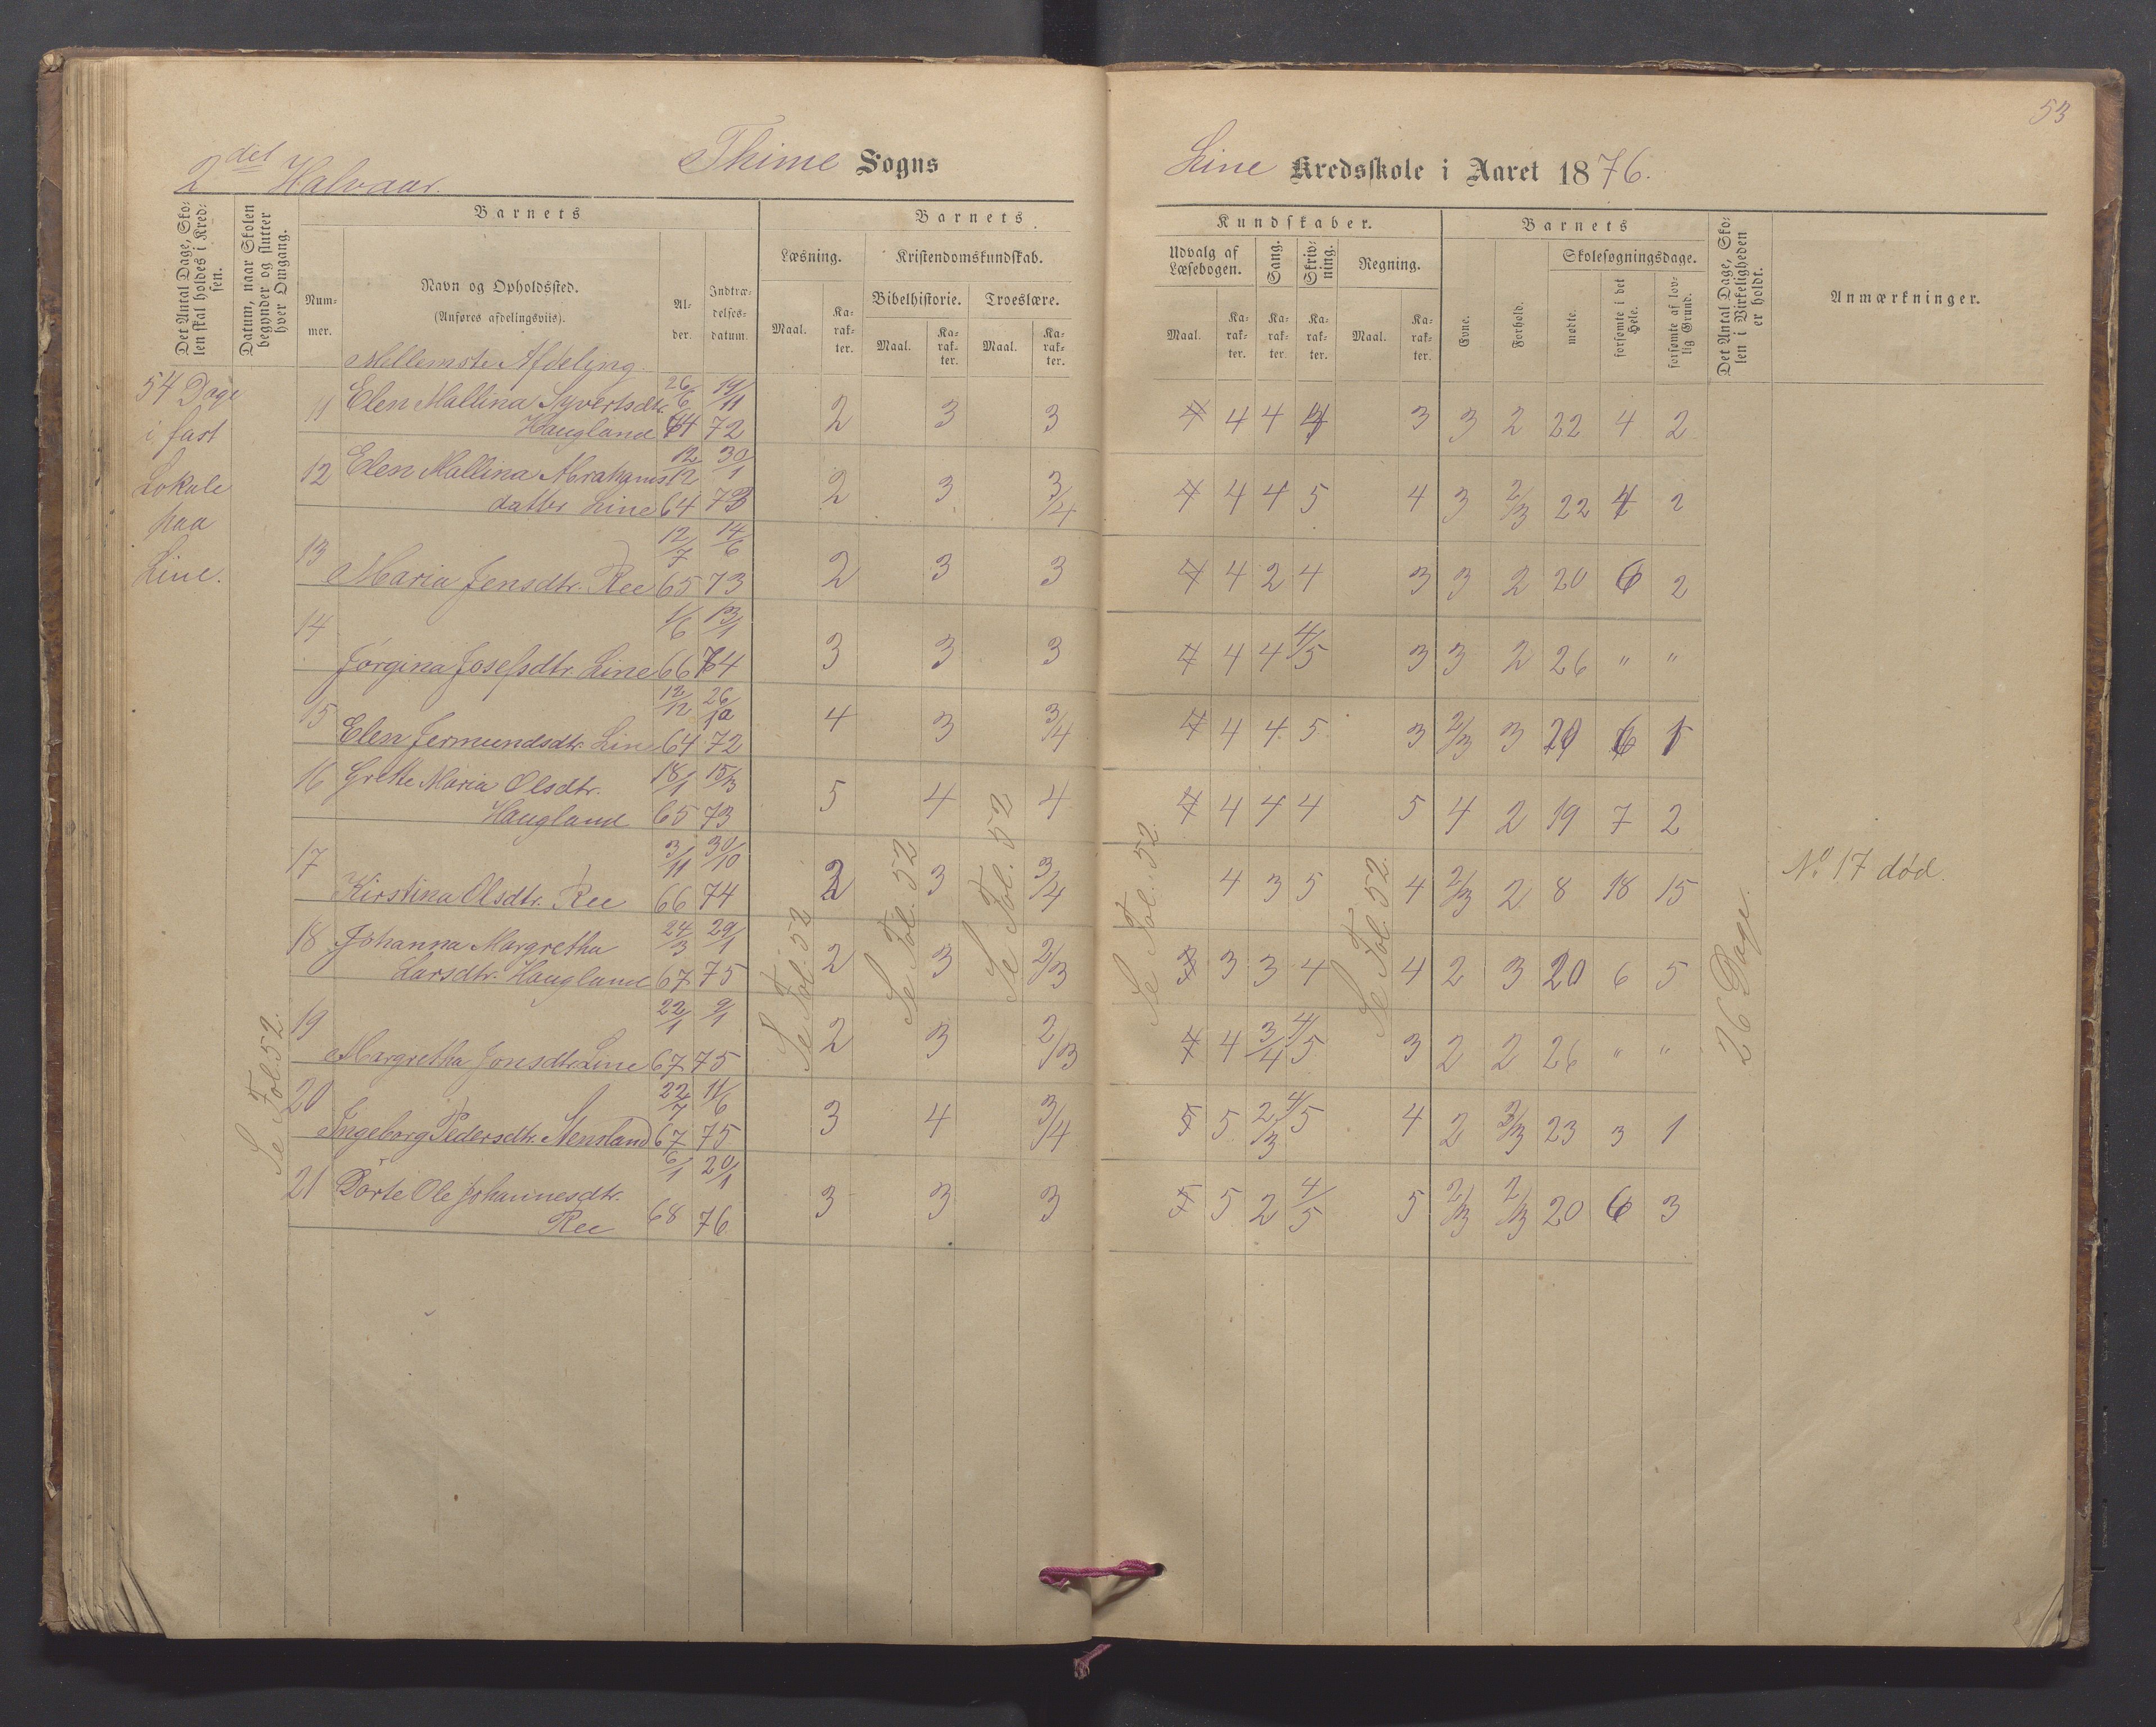 53
2det Halvaar.
Thime Sogns
Line Kredsskole i Aaret 1876.
Det Antal Dage, Sko-
len skal holdes i Kred-
sen.
Datum, naar Skolen
begynder og slutter
hver Omgang.
Barnets
Num-
mer.
Navn og Opholdssted.
(Anføres afdelingsviis).
Al-
der.
Indtræ-
delses-
datum.
Barnets
Læsning.
Kristendomskundskab.
Bibelhistorie.
Troeslære.
Maal.
Ka-
rak-
ter.
Maal.
Ka-
rak-
ter.
Maal.
Ka-
rak-
ter.
Kundskaber.
Udvalg af
Læsebogen.
Sang.
Skriv-
ning.
Regning.
Maal.
Ka-
rak-
ter.
Ka-
rak-
ter.
Ka-
rak-
ter.
Maal.
Ka-
rak-
ter.
Barnets
Evne.
Forhold.
Skolesøgningsdage.
mødte.
forsømte i det
Hele.
forsømte af lov-
lig Grund.
Det Antal Dage, Sko-
len i Virkeligheden
er holdt.
Anmærkninger.
Mellemste Afdeling.
54 Dage
i fast
Lokale
paa
Line.
Se Fol. 52.
11 Elen Mallina Syvertsdtr. 26/6 19/11
Haugland 64 72 2 3 3 4 4 4 3 3 2 22 4 2
12 Elen Mallina Abrahams 12/12 30/1
datter Line 64 73 2 3 3/4 4 4 5 4 3 2/3 22 4 2
13 12/7 14/6
Maria Jensdtr. Ree 65 73 2 3 3 4 2 4 3 3 2 20 6 2
14 1/6 13/1
Jorgina Josefsdtr. Line 66 74 3 3 3 4 4 4/5 3 3 2 26 " "
15 12/12 26/10
Elen Jermundsdtr. Lin 64 72 4 3 3/4 4 4 5 3 2/3 3 20 6 1
16 Grethe Maria Olsdtr. 18/1 15/3
Haugland 65 73 5 4 4 4 4 4 5 4 2 19 7 2
17 3/11 30/10
Kirstina Olsdtr. Ree 66 74 2 3 3/4 4 3 5 4 2/3 2 8 18 15
18 Johanna Margretha 24/3 29/1
Larsdtr. Haugland 67 75 2 3 2/3 3 3 4 4 2 3 20 6 5
19 22/1 9/1
Margretha Jonsdtr. Line 67 75 2 3 2/3 4 3/4 4/5 3 2 2 26 " "
20 22/7 11/6
Ingeborg Pedersdtr. Stensland 67 75 3 4 3/4 5 2/3 4/5 4 2 2/3 23 3 1
21 Dorte Ole Johannesdtr. 6/1 20/1
Ree 68 76 3 3 3 5 2 4/5 5 2/3 2/3 20 6 3
Se Fol. 52
Se Fol. 52
Se Fol. 52
Se Fol. 52.
Se Fol. 52.
26 Dage.
No 17 død.